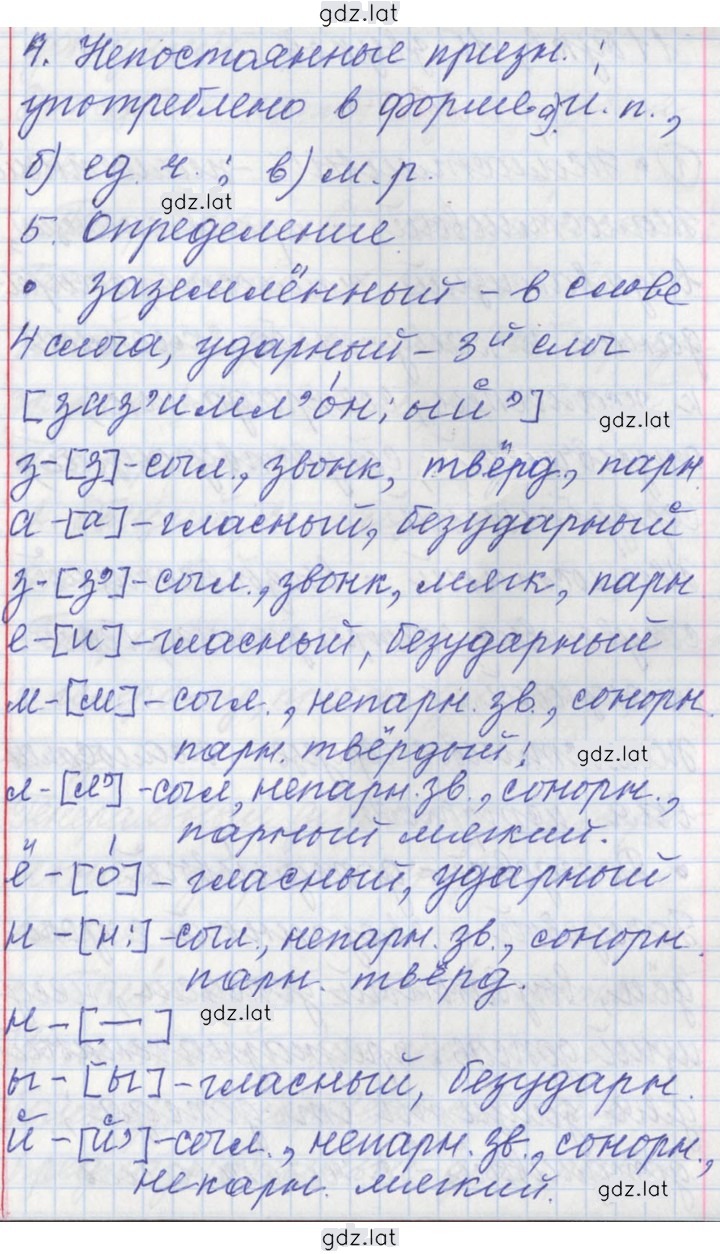 gdz.lat
4. Непостоянные призн.:
употреблено в форме а) И. п.,
б) ед. ч.; в) м. р.
gdz.lat
5. Определение
• заземлённый – в слове
4 слога, ударный – 3й слог
[заз'имл'о́н:ый']
gdz.lat
з – [з] – согл., звонк, твёрд., парн
а – [а] – гласный, безударный
з – [з'] – согл., звонк, мягк, парн
е – [и] – гласный, безударный
м – [м] – согл., непарн. зв., сонорн.
парн. твёрдый;
gdz.lat
л – [л'] – согл, непарн. зв., сонорн.,
парный мягкий.
ё – [о́] – гласный, ударный
н – [н:] – согл., непарн. зв., сонорн.
парн. твёрд.
gdz.lat
н – [—]
ы – [ы] – гласный, безударн.
й – [й'] – согл., непарн. зв., сонорн.,
непарн. мягкий.
gdz.lat
gdz.lat